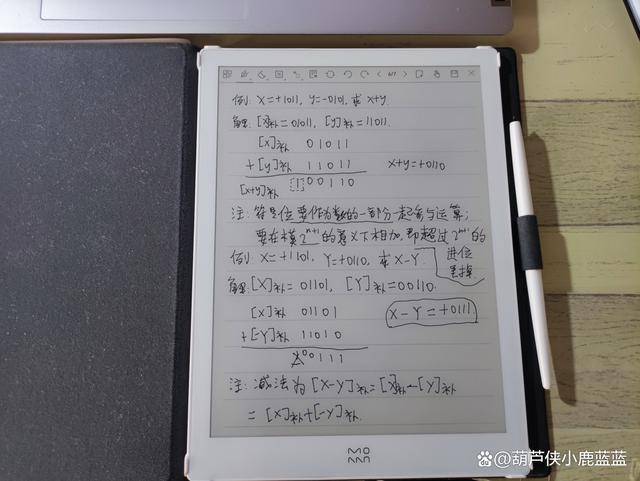 6/7
例: X=+1011, y=-0101, 求 x+y
解: [X]补=01011, [y]补=11011.
[x]补 01011
+[y]补 11011 x+y=+0110
[x+y]补 100110
注: 符号位要作为数的一部分一起参与运算;
要在模2ⁿ⁺¹的意义下相加,即超过2ⁿ⁺¹的
进位
丢掉
例: X=+1101, Y=+0110, 求X-Y
解: [X]补=01101, [Y]补=00110.
[X]补 01101
+[-Y]补 11010 X-Y=+0111
100111
注: 减法为 [X-Y]补=[X]补-[Y]补
=[X]补+[-Y]补.
百家号/葫芦侠小鹿蓝蓝